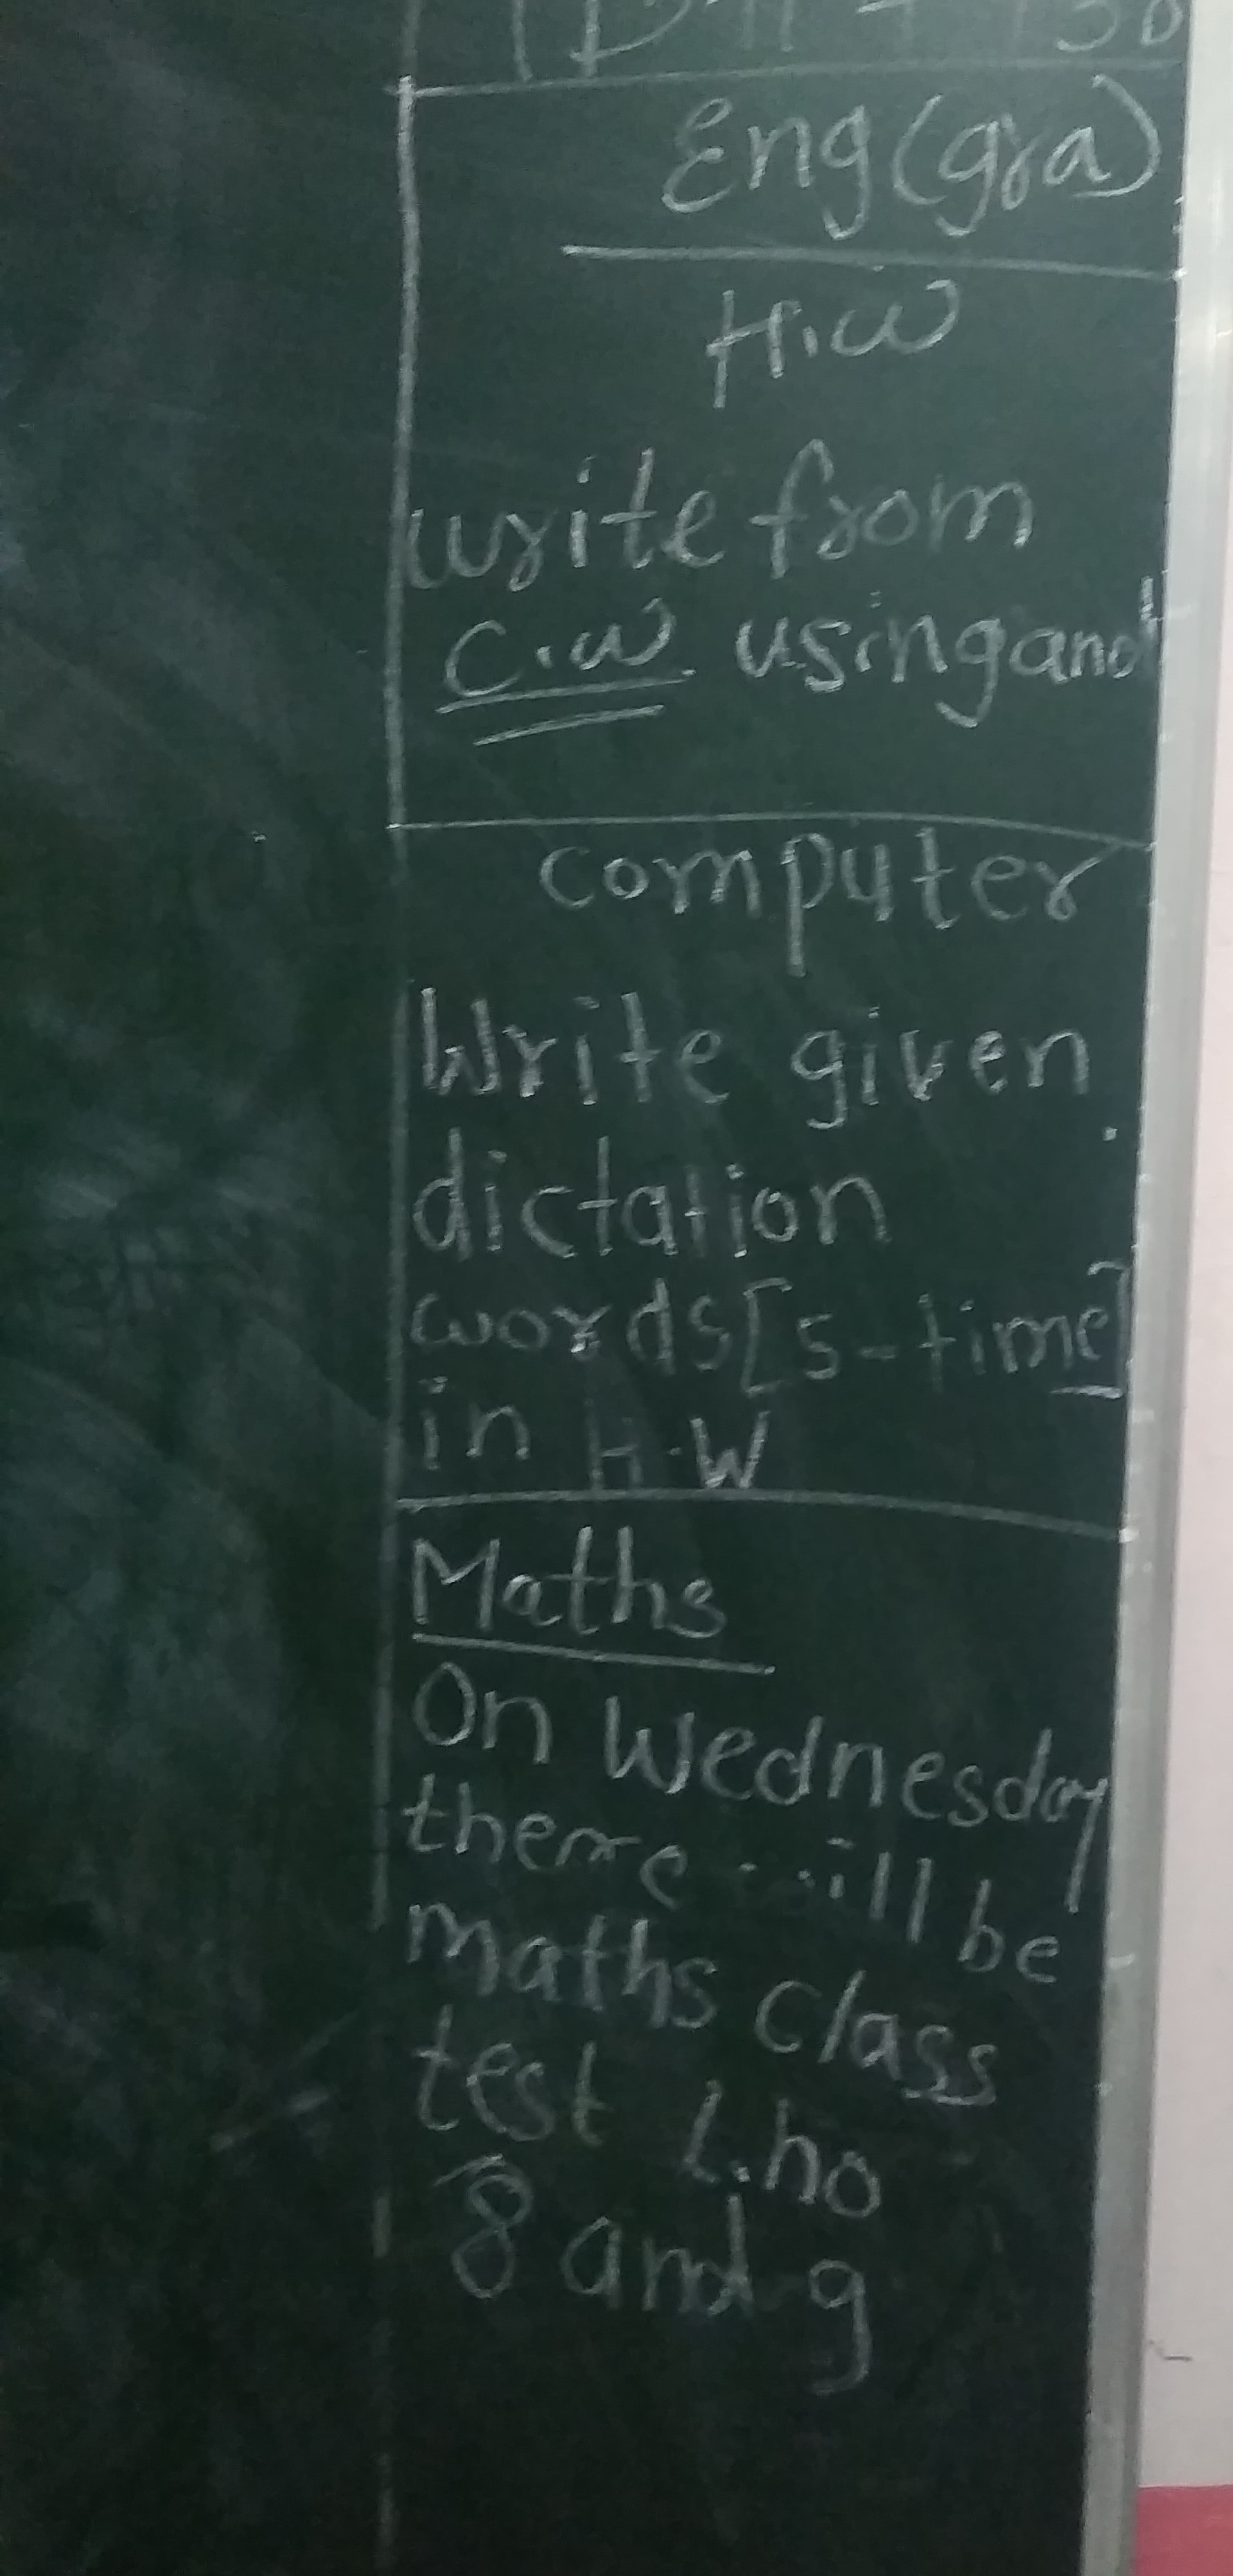 Eng (gra)
H.W
write from
C.W using and
computer
Write given
dictation
words [5-time]
in H.W
Maths
On Wednesday
there will be
maths class
test L.no
8 and 9